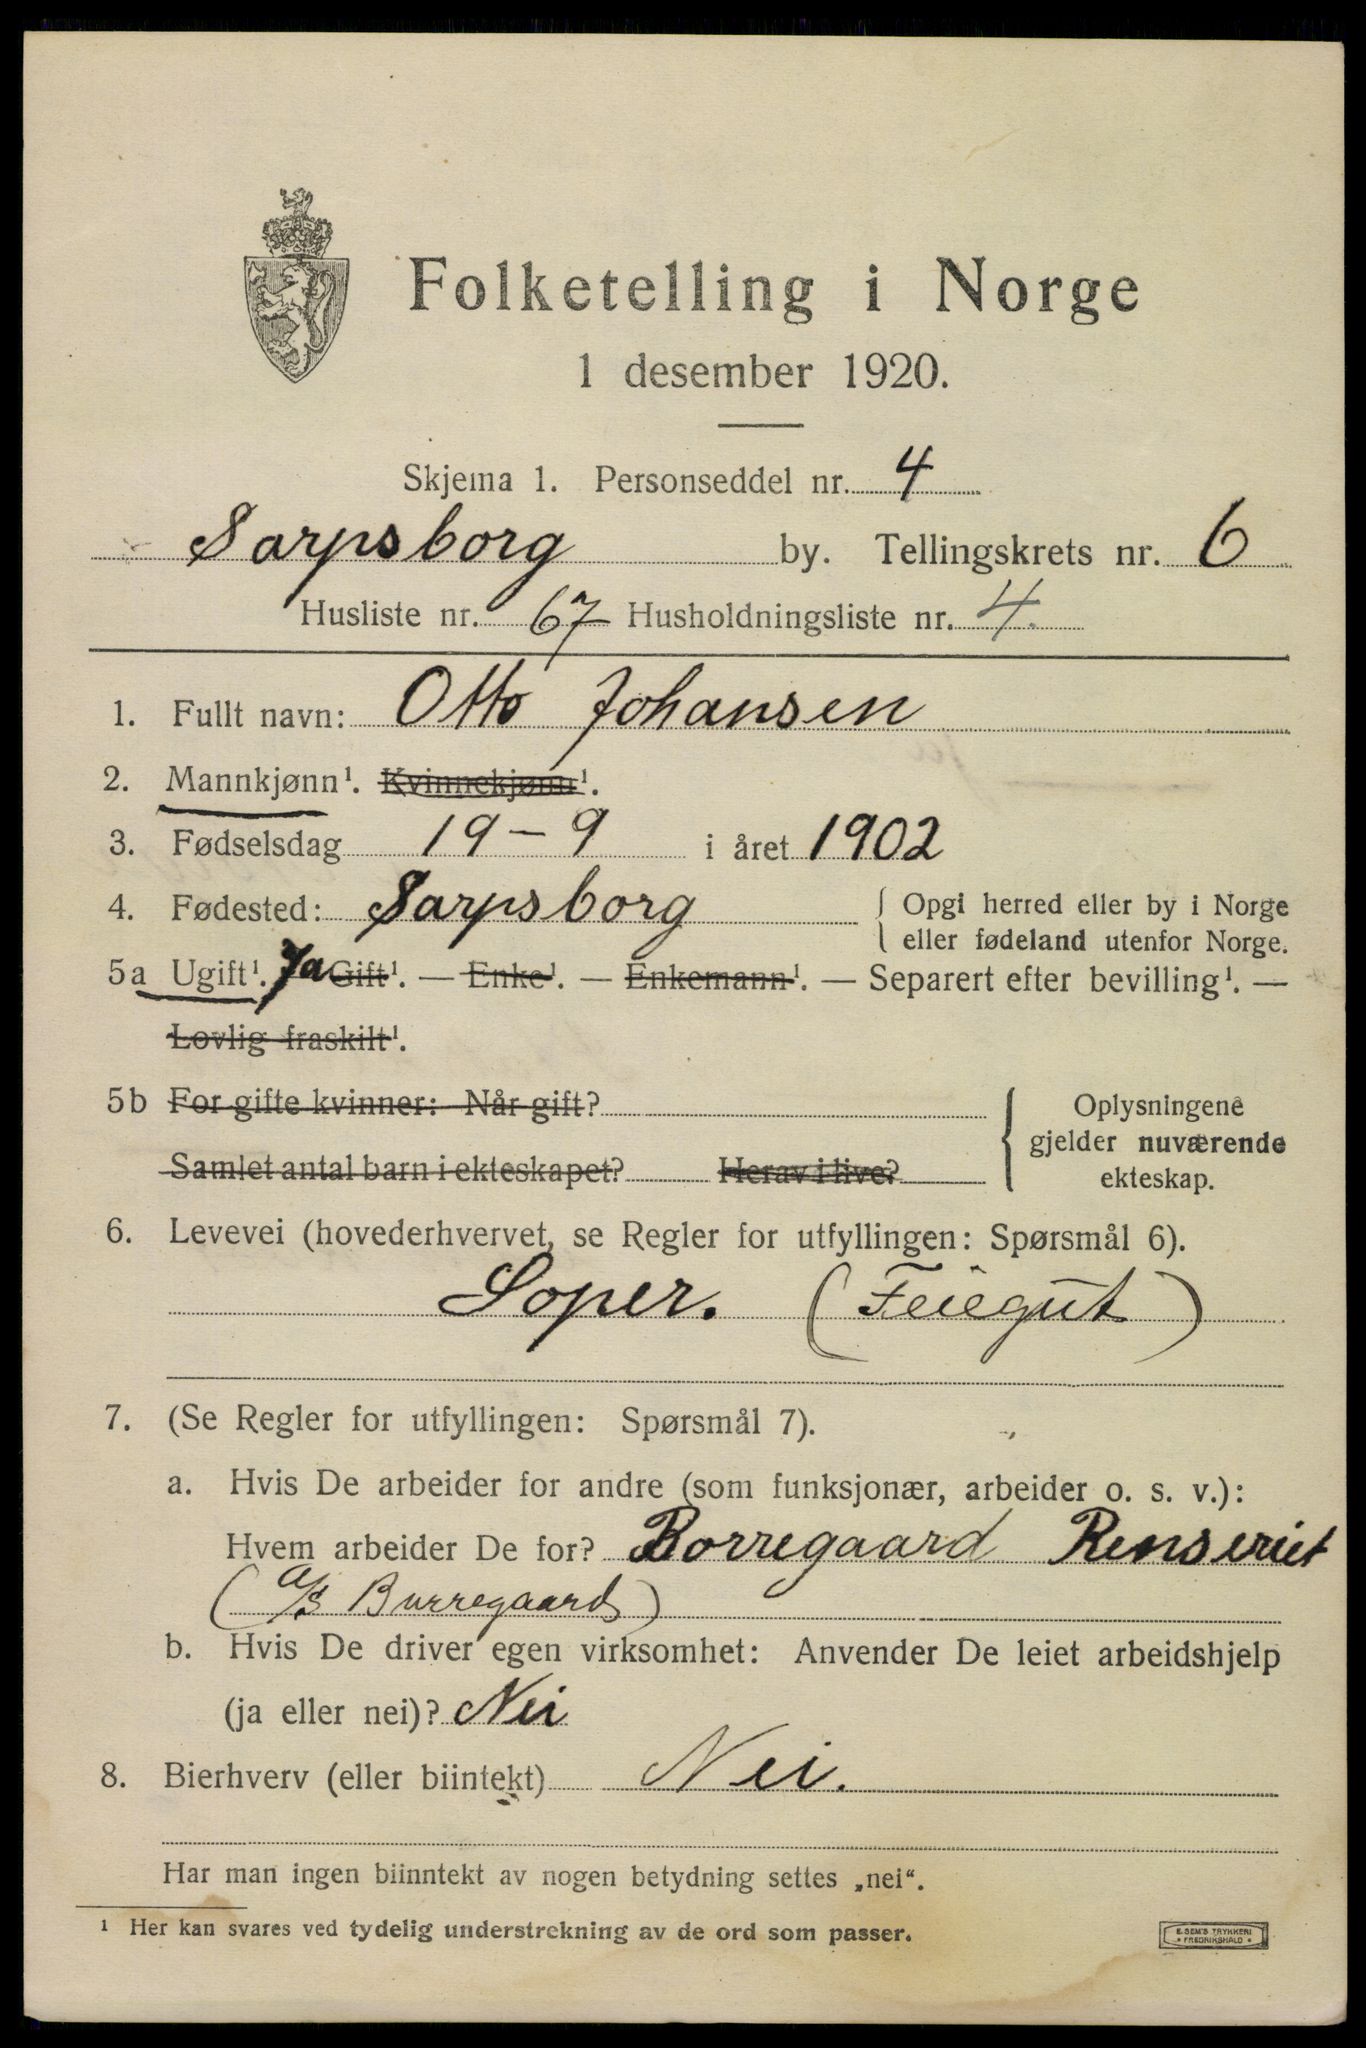 Folketelling i Norge
1 desember 1920.
Skjema 1. Personseddel nr. 4
Sarpsborg by. Tellingskrets nr. 6
Husliste nr. 67 Husholdningsliste nr. 4.
1. Fullt navn: Otto Johansen
2. Mannkjønn¹. Kvinnekjønn¹.
3. Fødselsdag 19 - 9 i året 1902
4. Fødested: Sarpsborg { Opgi herred eller by i Norge
eller fødeland utenfor Norge.
5a Ugift¹. Ja Gift¹. — Enke¹. — Enkemann¹. — Separert efter bevilling¹. —
Lovlig fraskilt¹.
5b For gifte kvinner: Når gift? Oplysningene
gjelder nuværende
Samlet antal barn i ekteskapet? Herav i live? ekteskap.
6. Levevei (hovederhvervet, se Regler for utfyllingen: Spørsmål 6).
Soper. (Feiegut)
7. (Se Regler for utfyllingen: Spørsmål 7).
a. Hvis De arbeider for andre (som funksjonær, arbeider o. s. v.):
Hvem arbeider De for? Borregaard Renseriet
(A/S Burregaard)
b. Hvis De driver egen virksomhet: Anvender De leiet arbeidshjelp
(ja eller nei)? Nei
8. Bierhverv (eller biintekt) Nei.
Har man ingen biinntekt av nogen betydning settes „nei“.
¹ Her kan svares ved tydelig understrekning av de ord som passer.
E. SEM'S TRYKKERI
• FREDRIKSHALD •